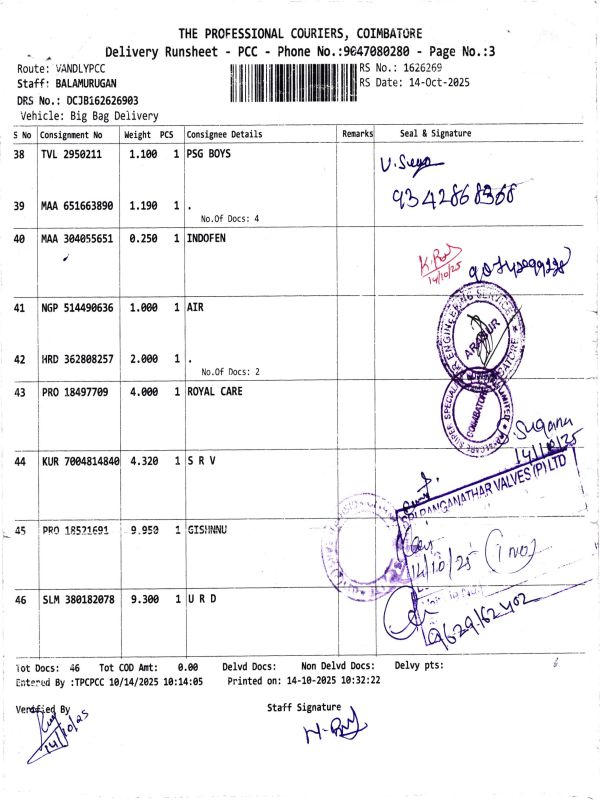 THE PROFESSIONAL COURIERS, COIMBATORE
Delivery Runsheet - PCC - Phone No.:9047080280 - Page No.:3
Route: VANDLYPCC RS No.: 1626269
Staff: BALAMURUGAN RS Date: 14-Oct-2025
DRS No.: DCJB162626903
Vehicle: Big Bag Delivery
S No Consignment No Weight PCS Consignee Details Remarks Seal & Signature
38 TVL 2950211 1.100 1 PSG BOYS
9342868368
39 MAA 651663890 1.190 1 .
No.Of Docs: 4
40 MAA 304055651 0.250 1 INDOFEN
14/10/25
41 NGP 514490636 1.000 1 AIR
ENGINEERING SERVICE
ARASUR
42 HRD 362808257 2.000 1 .
No.Of Docs: 2
43 PRO 18497709 4.000 1 ROYAL CARE
COIMBATORE
S.Sugana
14/10/25
44 KUR 7004814840 4.320 1 S R V
SRI RANGANATHAR VALVES (P) LTD
45 PRO 18521691 9.950 1 GISHNNU
14/10/25 (1 NO)
46 SLM 380182078 9.300 1 U R D
9629162402
Tot Docs: 46 Tot COD Amt: 0.00 Delvd Docs: Non Delvd Docs: Delvy pts:
Entered By :TPCPCC 10/14/2025 10:14:05 Printed on: 14-10-2025 10:32:22
Verified By Staff Signature
14/10/25